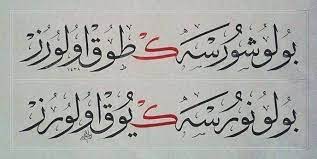 بولوشورسه ك طوق اولورز
بولونورسه ك يوق اولورز